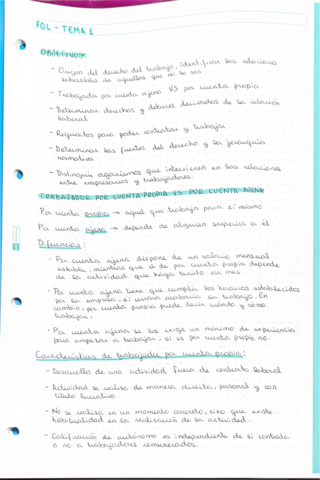 FOL - TEMA 1
OBJETIVOS:
- Origen del derecho del trabajo, identificar las relaciones
laborales de aquellas que no lo son
- Trabajador por cuenta ajena VS por cuenta propia
- Determinar derechos y deberes derivados de la relación
laboral
- Requisitos para poder contratar y trabajar
- Determinar las fuentes del derecho y la jerarquía
normativa
- Distinguir organismos que intervienen en las relaciones
entre empresarios y trabajadores
TRABAJADOR POR CUENTA PROPIA VS. POR CUENTA AJENA
Por cuenta propia → aquel que trabaja para sí mismo
Por cuenta ajena → depende de alguien superior a él
Diferencias:
· Por cuenta ajena dispone de un salario mensual
estable, mientras que el de por cuenta propia depende
de la actividad que haya tenido ese mes.
· Por cuenta ajena tiene que cumplir los horarios establecidos
por la empresa, al acabaría su trabajo. En
cambio, por cuenta propia puede decir cuándo y cómo
trabajar.
· Por cuenta ajena se les exige un mínimo de experiencia
para empezar a trabajar, si es por cuenta propia no.
Características de trabajador por cuenta propia:
- Desarrollo de una actividad fuera de contrato laboral
- Actividad se realiza de manera directa, personal y con
título lucrativo
- No se realiza en un momento concreto, sino que existe
habitualidad en la realización de la actividad.
- Calificación de autónomo es independiente de si contrata
o no a trabajadores remunerados.